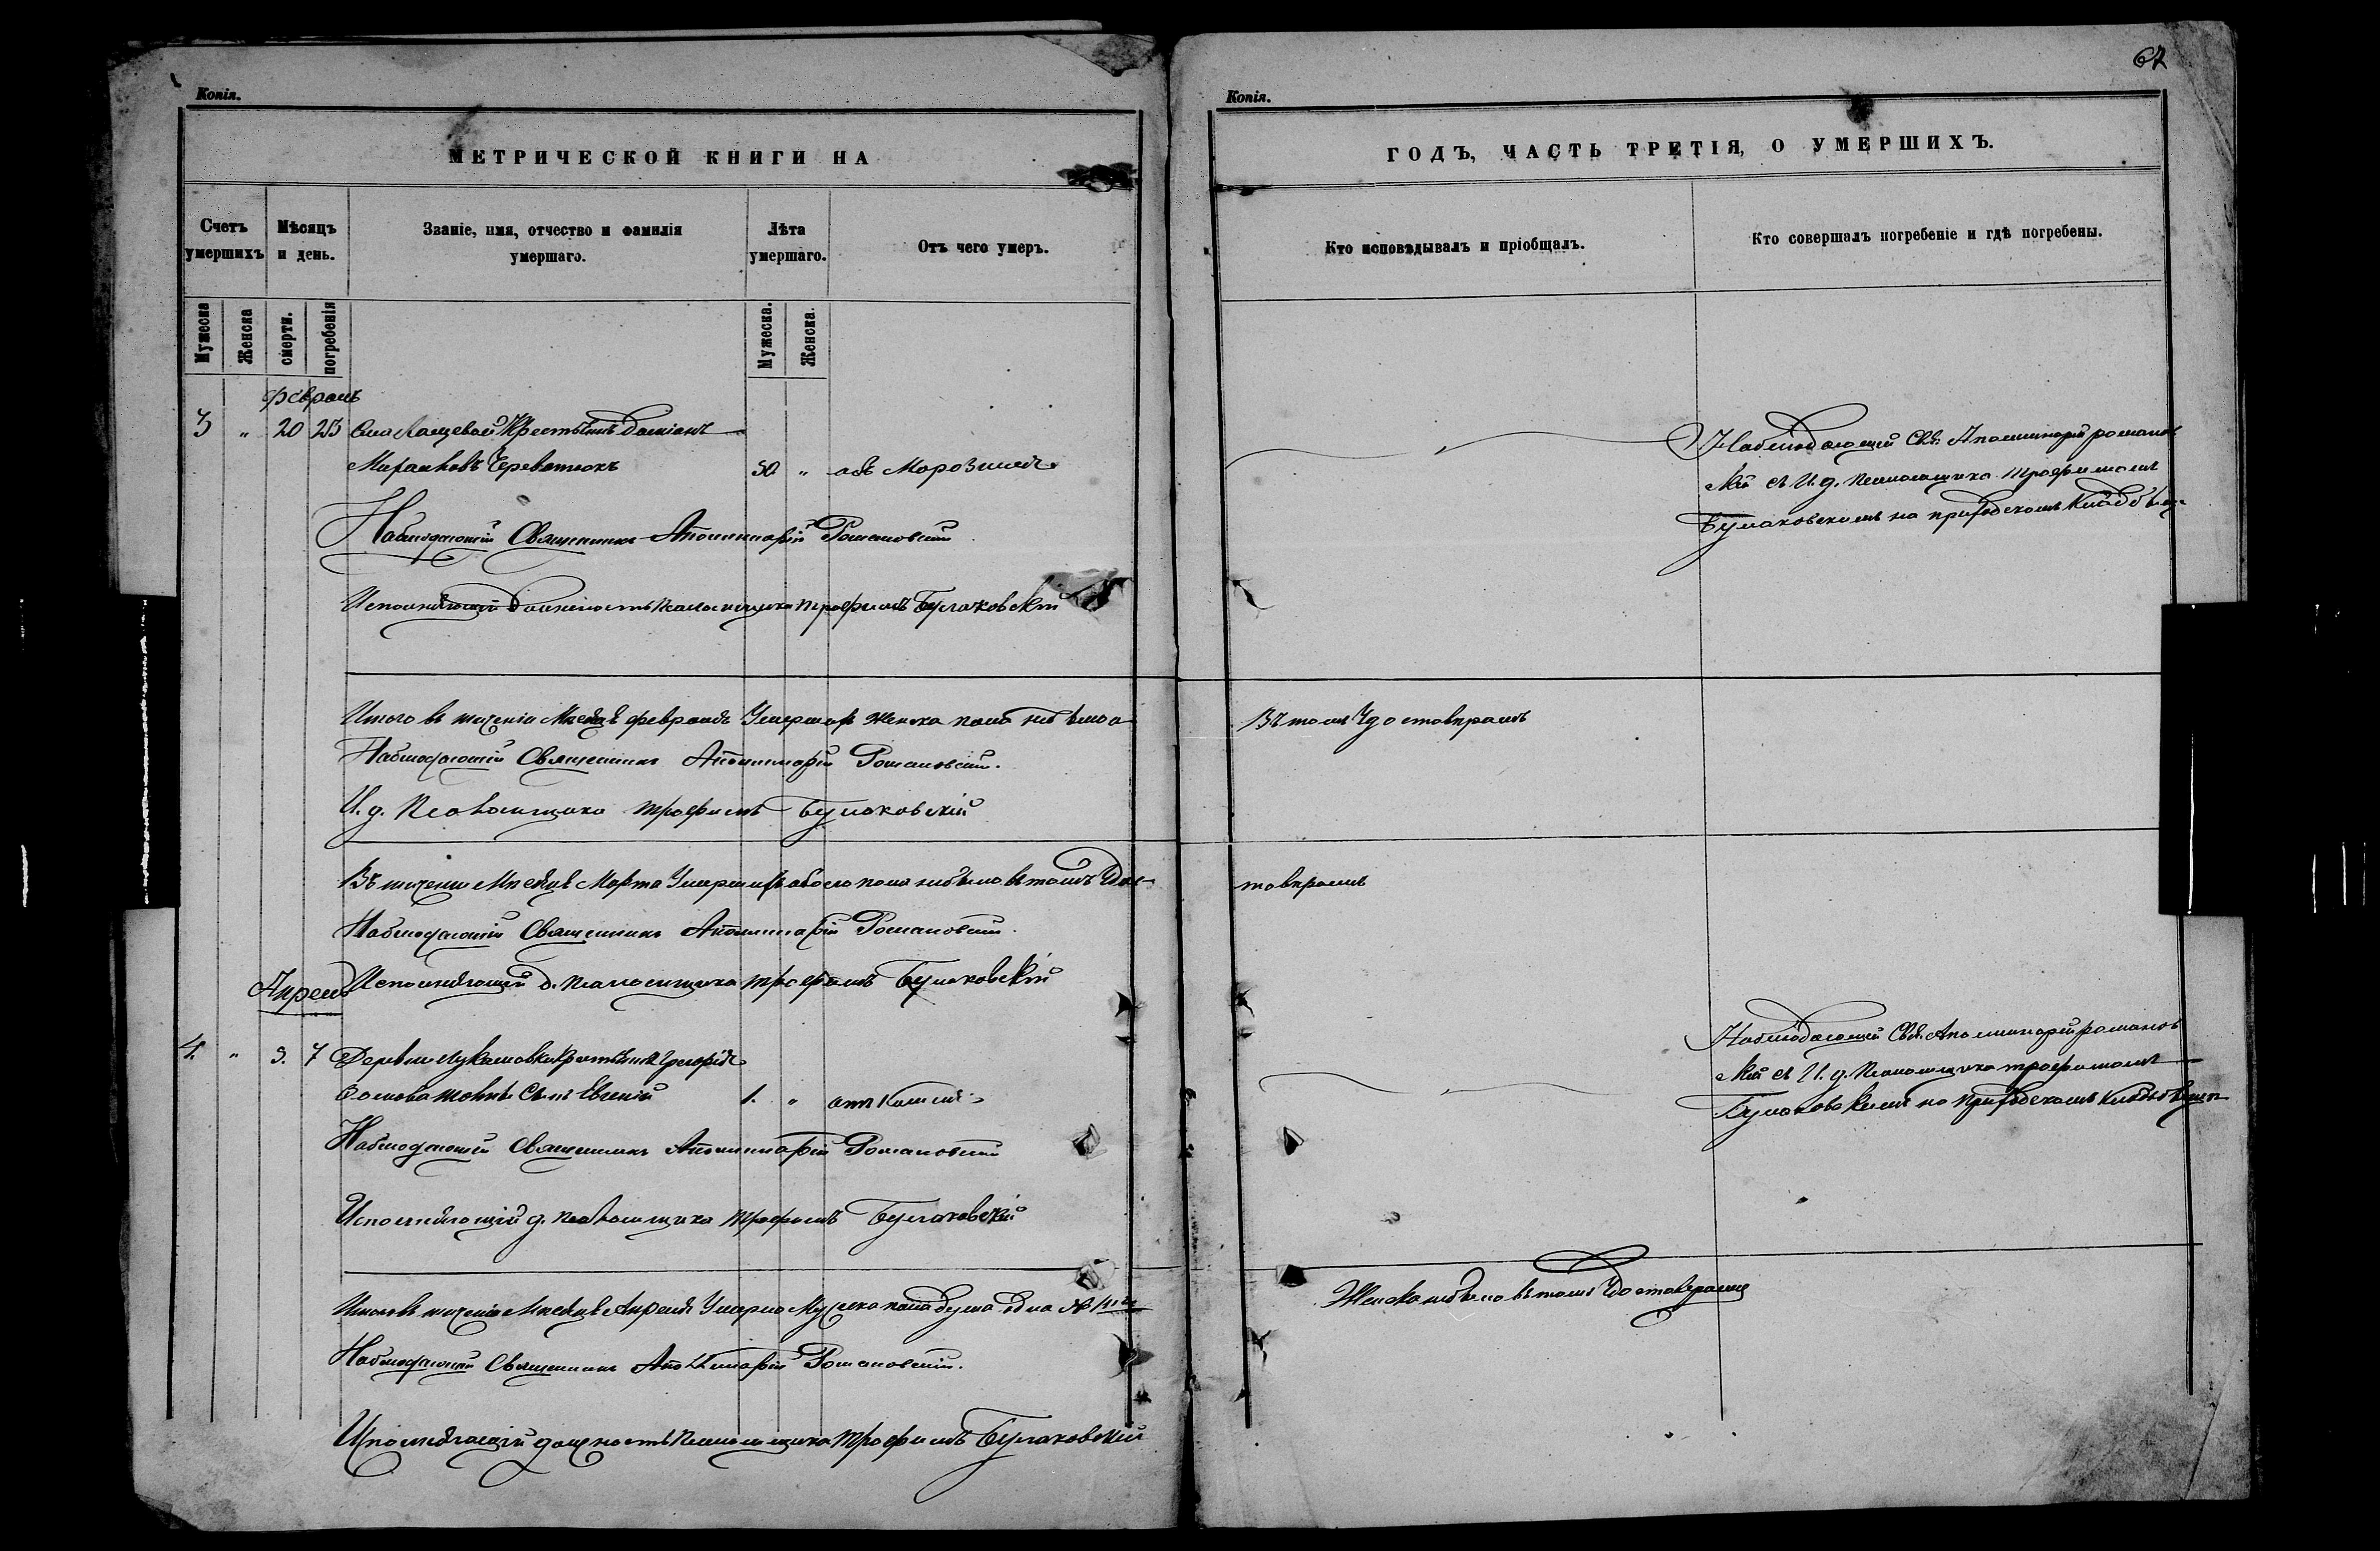 67
Копія.
МЕТРИЧЕСКОЙ КНИГИ НА
Счетъ умершихъ
Мѣсяцъ и день.
Званіе, имя, отчество и фамилія умершаго.
Лѣта умершаго.
Отъ чего умеръ.
Мужеска
Женска
смерти.
погребенія
Мужеска.
Женска.
Февраль
3 " 20 23 Села Крестьянинъ Даміанъ
Череватюкъ 50 "
Наблюдающій Священникъ Аполлинарій Романовскій
Исполняющій должность псаломщика Трофимъ Булаковскій
Итого въ теченіи Мѣсяцѣ февралѣ Умершихъ женска пола небыло
Наблюдающій Священникъ Аполлинарій Романовскій.
И. д. Псаломщика Трофимъ Булаковскій
Въ теченіи Мѣсяцѣ Марта Умершихъ обоего пола небыло въ томъ Удос-
Наблюдающій Священникъ Аполлинарій Романовскій.
Исполняющій д. псаломщика Трофимъ Булаковскій
Апрель
4. " 3. 7 Деревни Лукашовки Крестьянина Григорія
Сынъ Евгеній 1. " отъ Кашля
Наблюдающій Священникъ Аполлинарій Романовскій
Исполняющій д. псаломщика Трофимъ Булаковскій
Итого въ теченіи Мѣсяцѣ Апрелѣ Умерло Мужеска пола душа одна №
Наблюдающій Священникъ Аполлинарій Романовскій.
Исполняющій должность Псаломщика Трофимъ Булаковскій
Копія.
ГОДЪ, ЧАСТЬ ТРЕТІЯ, О УМЕРШИХЪ.
Кто исповѣдывалъ и пріобщалъ.
Кто совершалъ погребеніе и гдѣ погребены.
Наблюдающій Свя. Аполлинарій Романов
скій съ И. д. псаломщика Трофимомъ
Булаковскимъ на приходскомъ Кладбищѣ
Въ томъ Удостовѣряемъ
товѣряемъ
Наблюдающій Свя. Аполлинарій Романов
скій съ И. д. Псаломщика Трофимомъ
Булаковскимъ на Приходскомъ Кладбищѣ
Женска небыло въ томъ Удостовѣряемъ